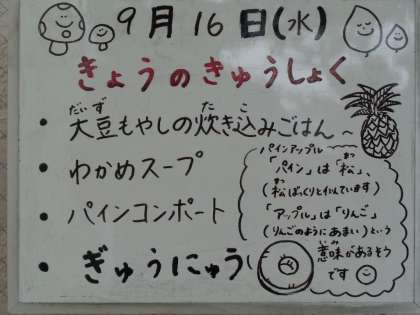 9月16日(水)
きょうのきゅうしょく
・大豆もやしの炊き込みごはん～
・わかめスープ
・パインコンポート
・ぎゅうにゅう
パインアップル
「パイン」は「松」、
(松ぼっくりと似ています)
「アップル」は「りんご」
(りんごのようにあまい)という
意味があるそう
です